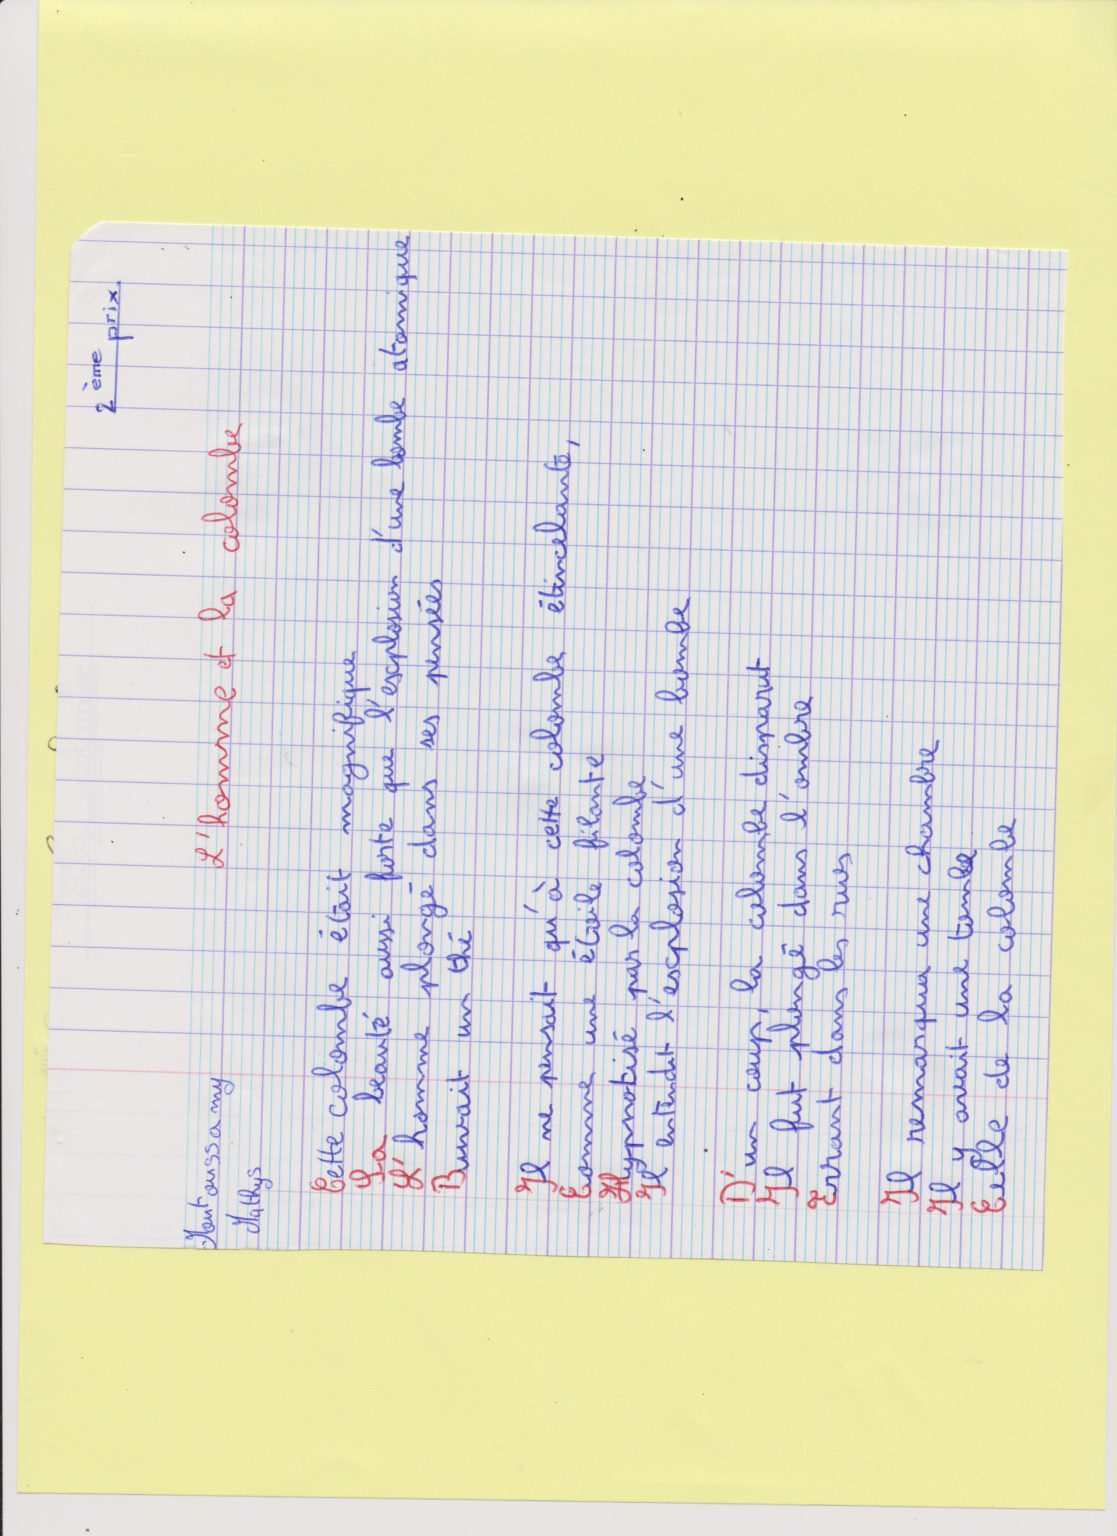 2ème prix
Moutoussamy
Mathys
L'homme et la colombe
Cette colombe était magnifique
Sa beauté aussi forte que l'explosion d'une bombe atomique
L'homme plongé dans ses pensées
Buvait un thé
Il ne pensait qu'à cette colombe étincelante,
Comme une étoile filante
Hypnotisé par la colombe
Il entendit l'explosion d'une bombe
D'un coup, la colombe disparut
Il fut plongé dans l'ombre
Errant dans les rues
Il remarqua une chambre
Il y avait une tombe
Celle de la colombe